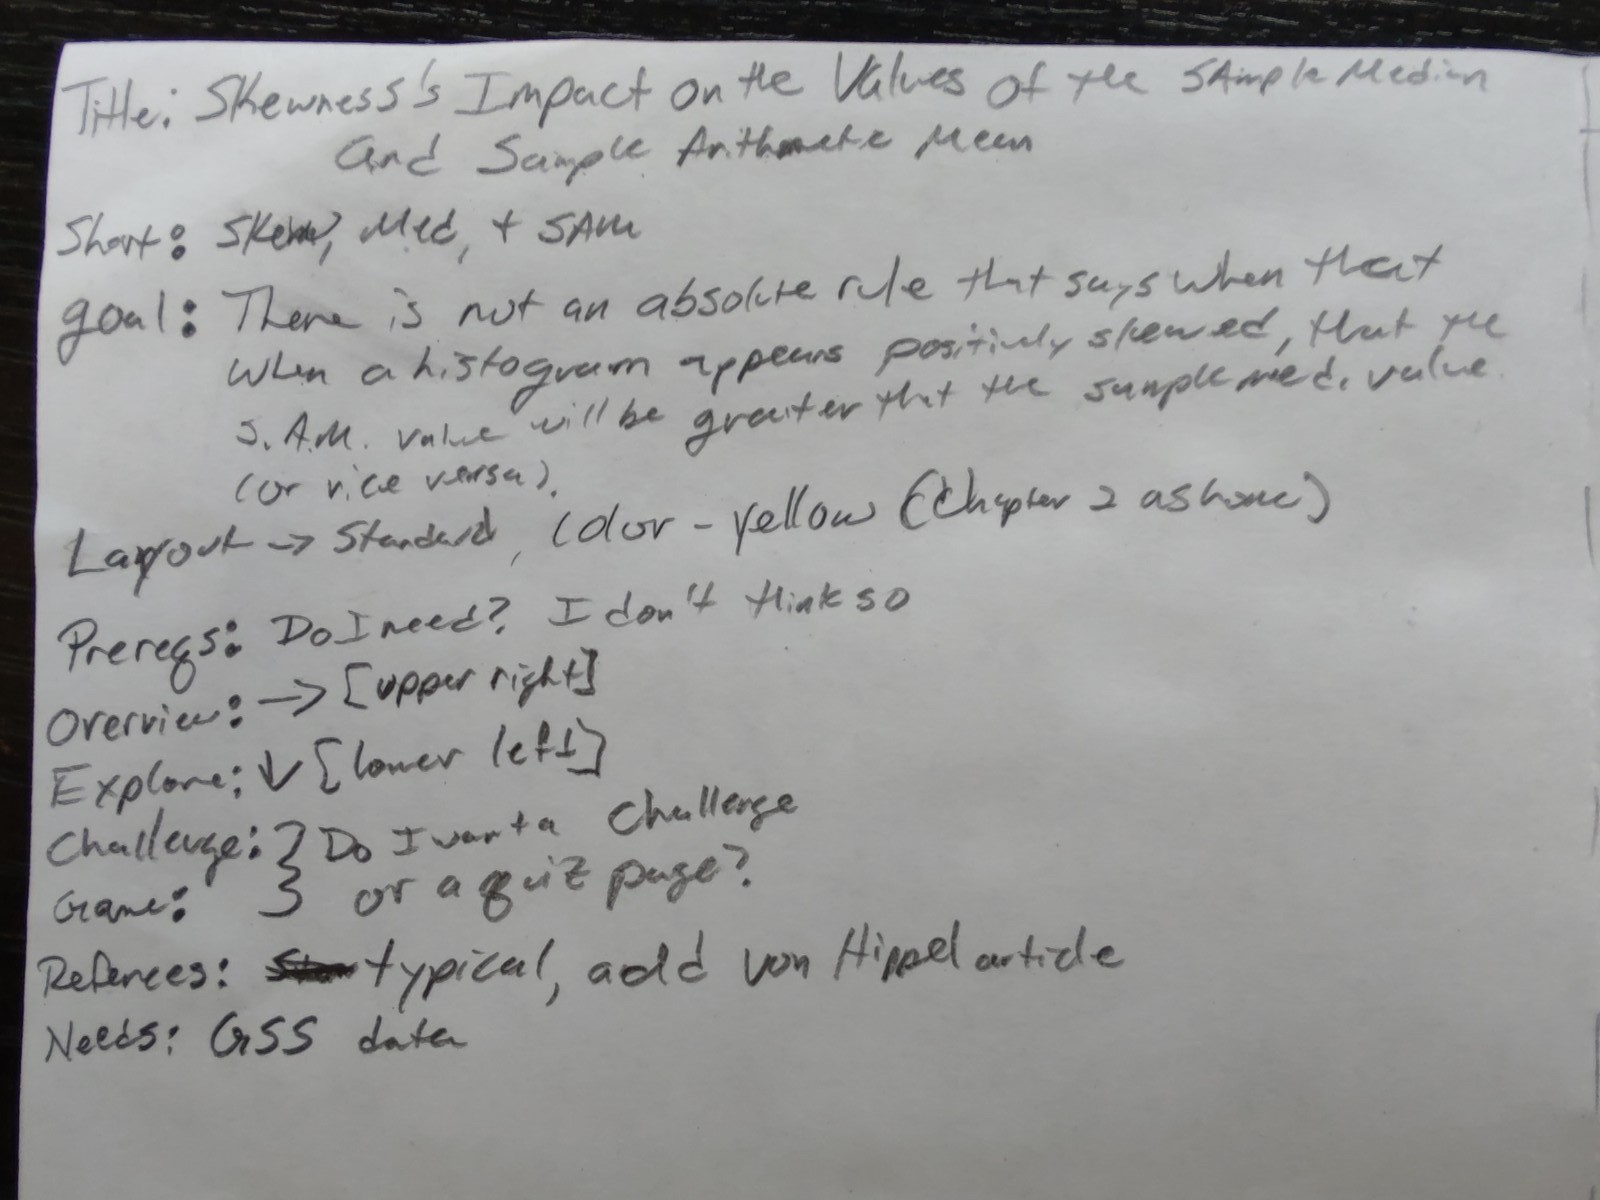 Title: Skewness's Impact on the Values of the Sample Median
and Sample Arithmetic Mean
Short: Skew, Med, + SAM
goal: There is not an absolute rule that says when that
when a histogram appears positively skewed, that the
S.A.M. value will be greater that the sample med. value.
(or vice versa).
Layout → Standard, Color - yellow (Chapter 2 as home)
Prereqs: Do I need? I don't think so
Overview: → [upper right]
Explore: ↓ [lower left]
Challenge: } Do I want a challenge
Game: } or a quiz page?
Refereces: typical, add von Hippel article
Needs: GSS data